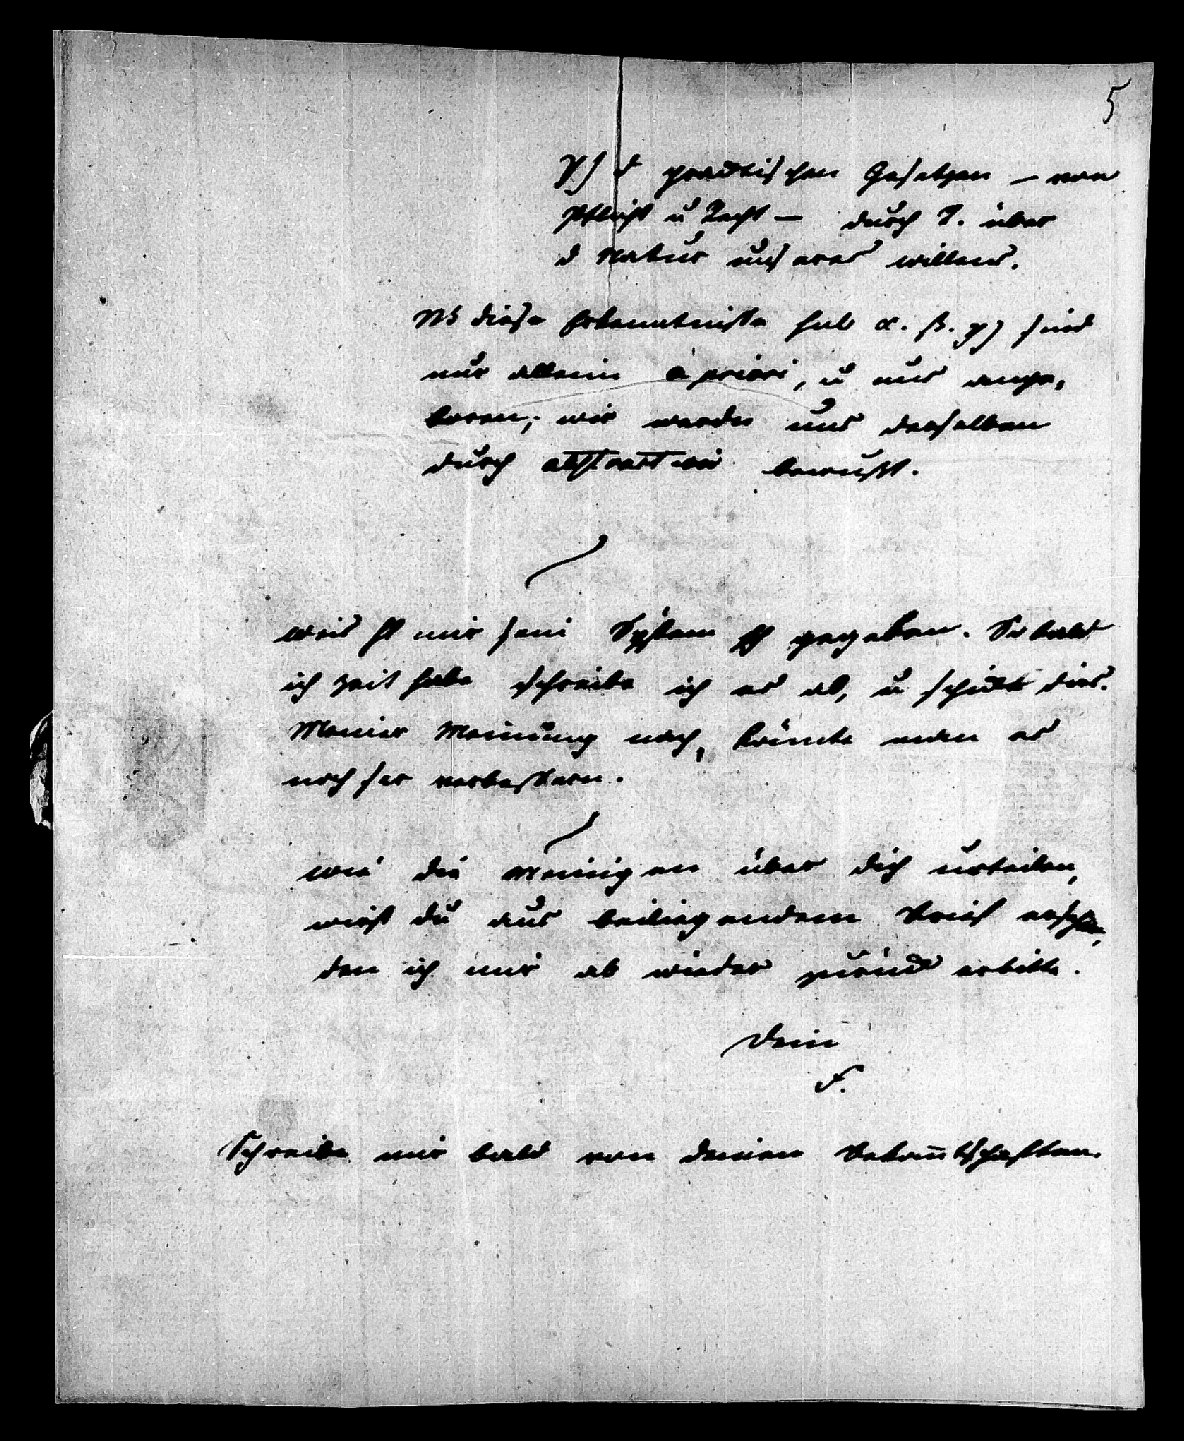 5
γ) d practischen Gesetzen – von
Pflicht u Recht – durch T. über
d Natur unseres willens.
NB diese Erkenntnisse sub α. β. γ) sind
nur allein à priori, u uns ange,
boren; wir werden uns derselben
durch abstraction bewußt.
weis ht mir sein System gegeben. So bald
ich zeit habe schreibe ich es ab, u schick dies.
Meiner Meinung nach, könnte man es
noch ser verbessern.
wie die Meinigen über dich urteilen,
wirst du aus beiliegendem Brief ersehen,
den ich mir ab wieder zurück erbitte.
Dein
F.
Schreibe mir bald von deinen Bekanntschaften.